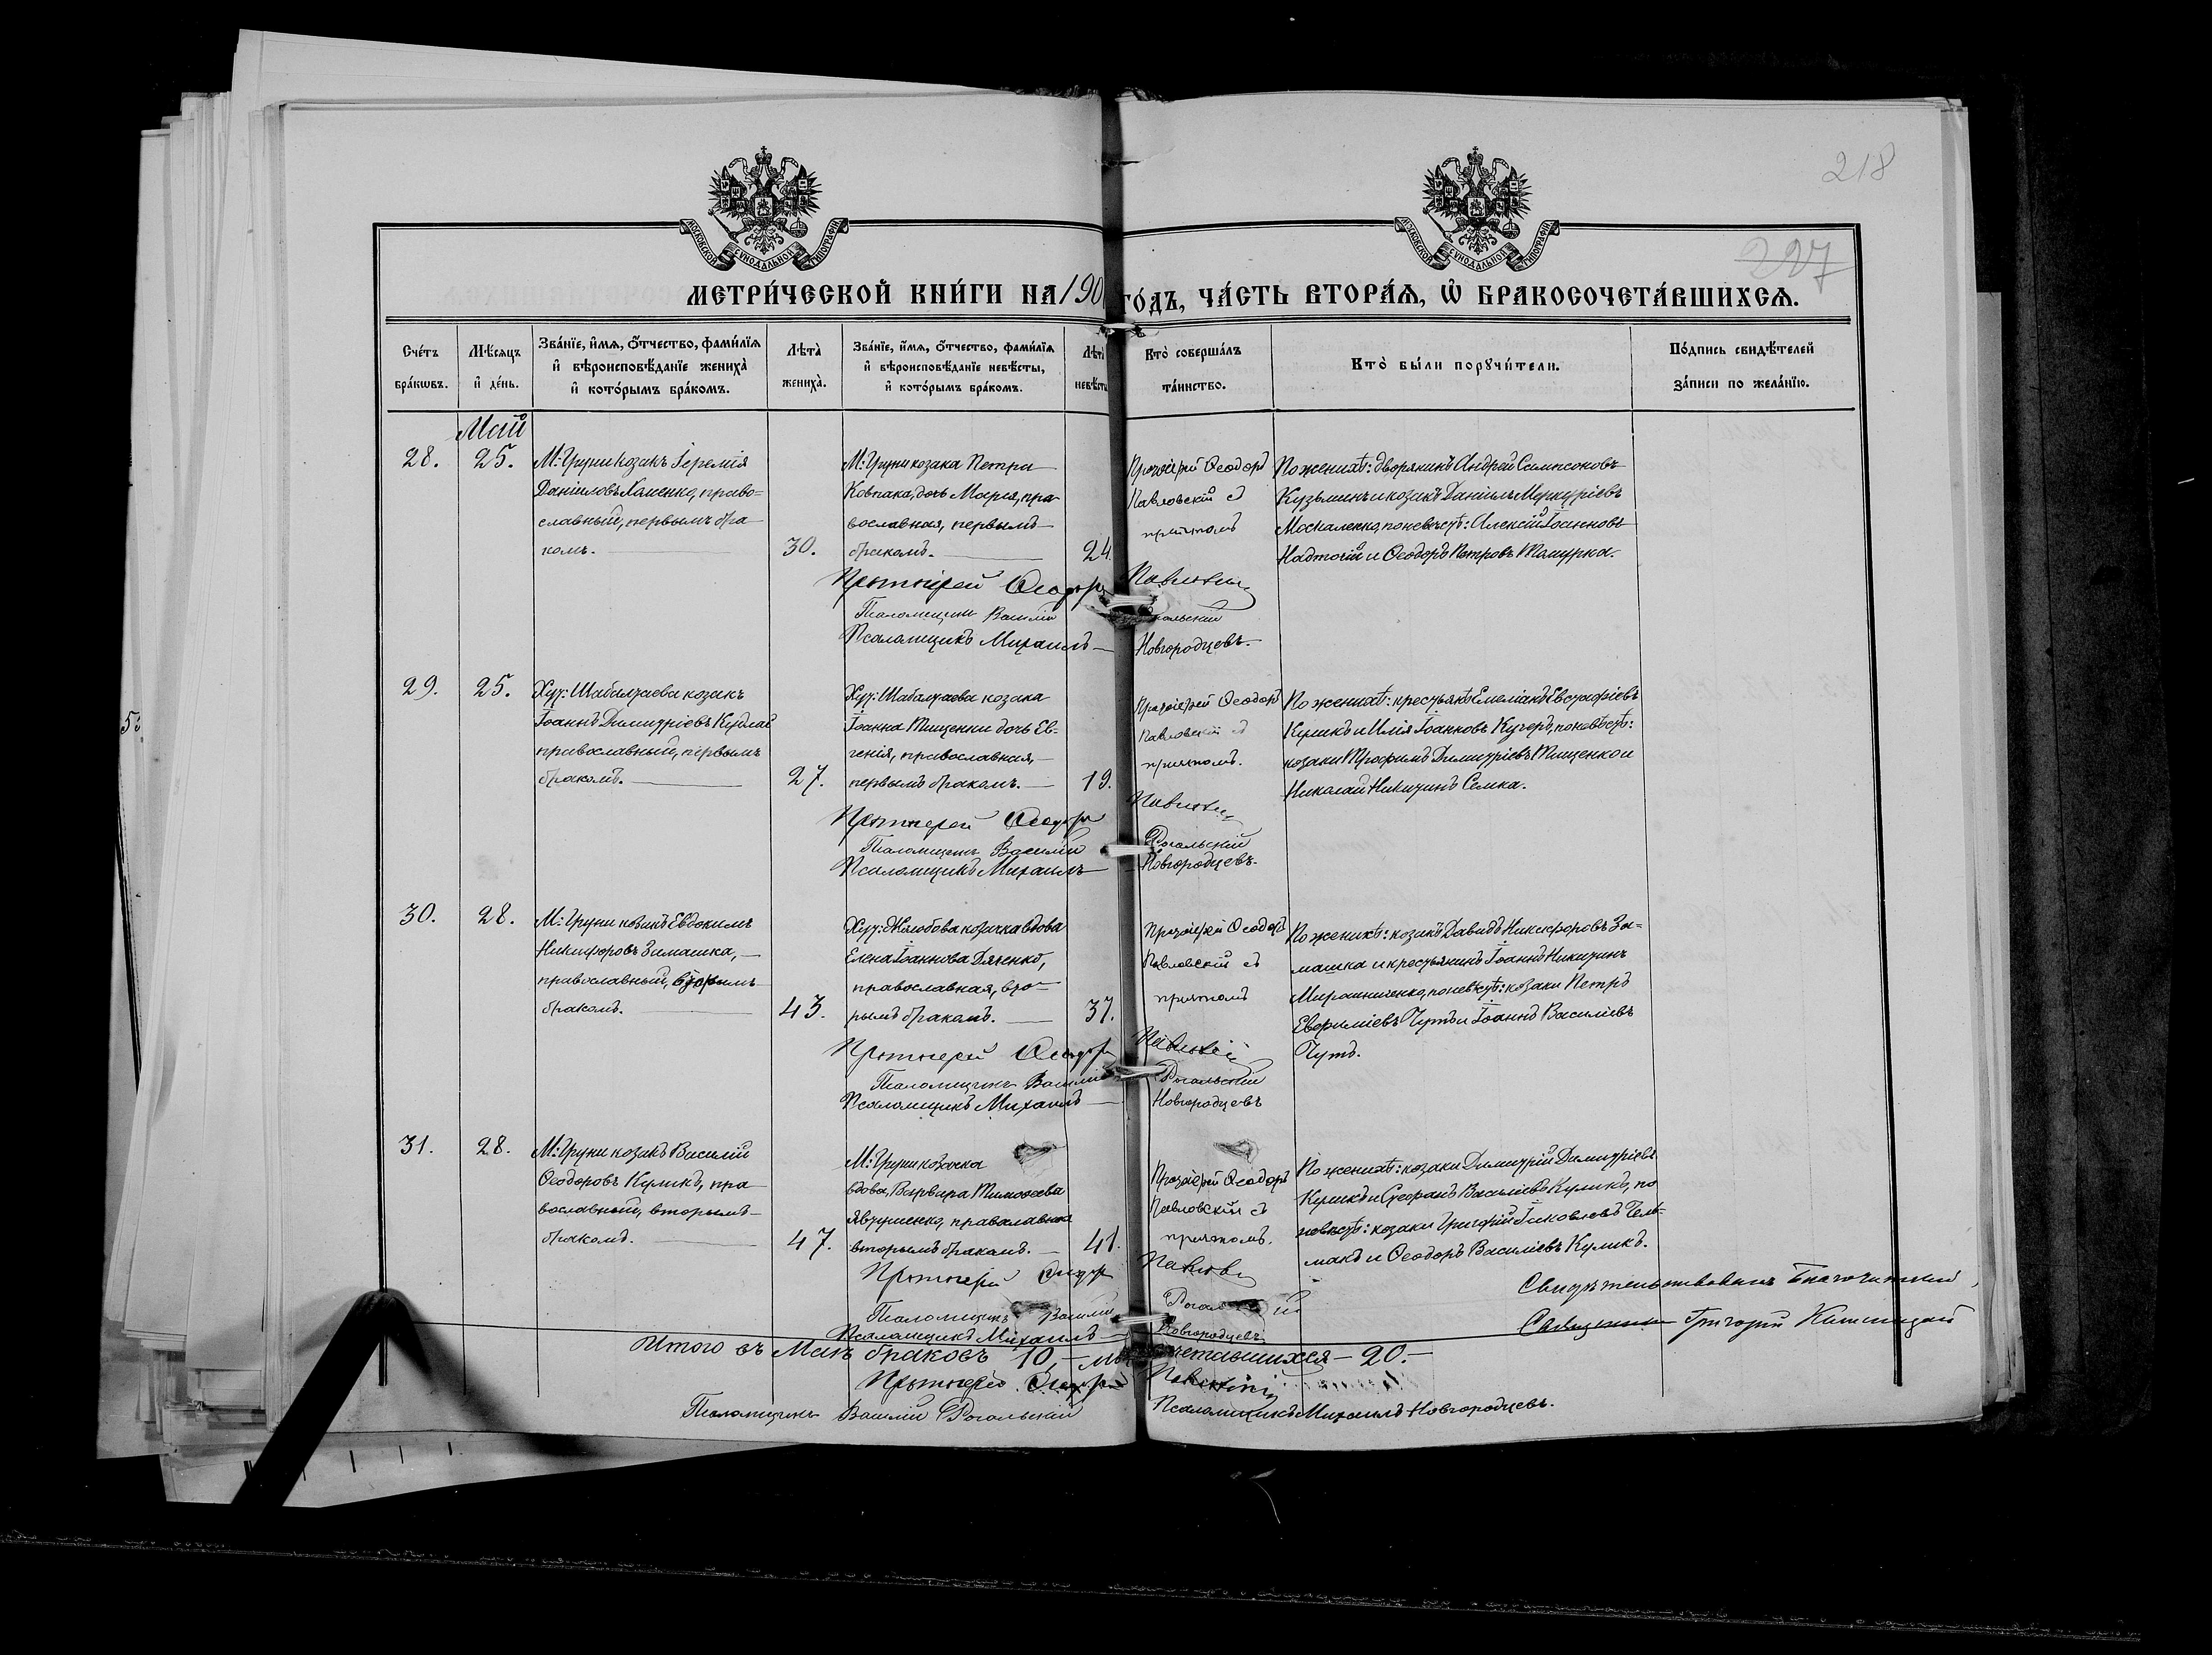 218
227
МОСКОВСКОЙ СУНОДАЛЬНОЙ ТИПОГРАФІИ
МОСКОВСКОЙ СУНОДАЛЬНОЙ ТИПОГРАФІИ
МЕТРИ́ЧЕСКОЙ КНИ́ГИ НА 190 ГО́ДЪ, ЧА́СТЬ ВТОРА́Я, Ѡ БРАКОСОЧЕТА́ВШИХСЯ.
Сче́тъ бра́кѡвъ.
Мѣ́сяцъ и де́нь.
Зва́нїе, и́мя, о́тчество, фами́лїя и вѣроисповѣ́данїе жениха̀ и кото́рымъ бра́комъ.
Лѣта̀ жениха̀.
Зва́нїе, и́мя, о́тчество, фами́лїя и вѣроисповѣ́данїе невѣ́сты, и кото́рымъ бра́комъ.
Лѣта̀ невѣ́сты
Кто̀ соверша́лъ та́инство.
Кто̀ бы́ли порꙋчи́тели.
По́дпись свидѣ́телей за́писи по жела́нїю.
Май
28.
25.
М: Груни козакъ Іеремія
Даніиловъ Хоменко, право-
славный, первымъ бра
комъ.
30.
М: Груни козака Петра
Ковпака, дочь Марія, пра-
вославная, первымъ
бракомъ.
24
Протоіерей Ѳеодоръ
Павловскій съ
причтомъ
По женихѣ: дворянинъ Андрей Самсоновъ
Кузьминъ и козакъ Даніилъ Меркуріевъ
Москаленко, по невѣстѣ: Алексій Іоанновъ
Надточій и Ѳеодоръ Петровъ
Протоіерей Ѳеодоръ Павловскій
Псаломщикъ Василій
Псаломщикъ Михаилъ Новгородцевъ.
29.
25.
Хут: Шабалтаева козакъ
Іоаннъ Димитріевъ
православный, первымъ
бракомъ.
27.
Хут: Шабалтаева козака
Іоанна Тищенки дочь Ев-
генія, православная,
первымъ бракомъ.
19.
Протоіерей Ѳеодоръ
Павловскій съ
причтомъ.
По женихѣ: крестьянъ Емеліанъ Евстафіевъ
Куликъ и Илія Іоанновъ Кучеръ, по невѣстѣ:
козаки Трофимъ Димитріевъ Тищенко и
Николай Никитинъ Семка.
Протоіерей Ѳеодоръ Павловскій
Псаломщикъ Василій Рогальскій
Псаломщикъ Михаилъ Новгородцевъ.
30.
28.
М: Груни козакъ Евдокимъ
Никифоровъ Зимашка,
православный, вторымъ
бракомъ.
43.
Хут: козачка вдова
Елена Іоаннова Дяченко,
православная, вто-
рымъ бракомъ.
37.
Протоіерей Ѳеодоръ
Павловскій съ
причтомъ
По женихѣ: козакъ Давидъ Никифоровъ Зи-
машка и крестьянинъ Іоаннъ Никитинъ
Мирошниченко, по невѣстѣ: козаки Петръ
Евфиміевъ Чутъ и Іоаннъ Василіевъ
Чутъ.
Протоіерей Ѳеодоръ Павловскій
Псаломщикъ Василій Рогальскій
Псаломщикъ Михаилъ Новгородцевъ
31.
28.
М: Груни козакъ Василій
Ѳеодоровъ Куликъ, пра
вославный, вторымъ
бракомъ.
47.
М: Груни козачка
вдова, Варвара Тимоѳеева
Явтушенко, православная
вторымъ бракомъ.
41.
Протоіерей Ѳеодоръ
Павловскій съ
причтомъ.
По женихѣ: козаки Димитрій Димитріевъ
Куликъ и Стефанъ Василіевъ Куликъ, по
невѣстѣ: козаки Григорій Іаковлевъ
и Ѳеодоръ Василіевъ Куликъ.
Протоіерей Ѳеодоръ
Псаломщикъ Василій
Псаломщикъ Михаилъ Новгородцевъ
Свидѣтельствовалъ Благочинный,
Священникъ Григорій
Итого въ Маѣ браковъ 10, — 20. —
Протоіерей Ѳеодоръ Павловскій
Псаломщикъ Василій Рогальскій
Псаломщикъ Михаилъ Новгородцевъ.